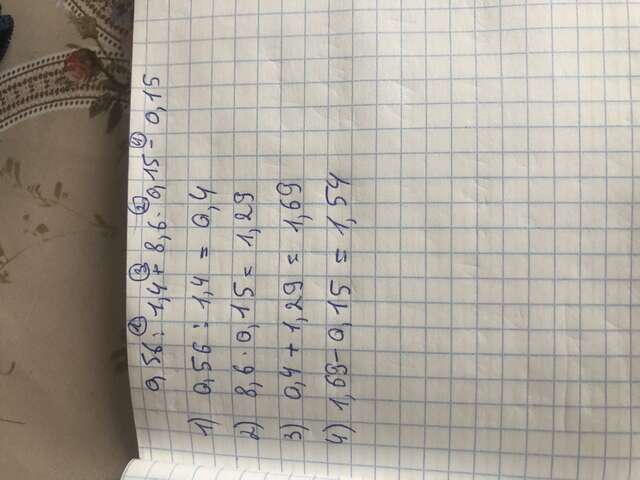 0,56 : 1,4 + 8,6 · 0,15 - 0,15
1) 0,56 : 1,4 = 0,4
2) 8,6 · 0,15 = 1,29
3) 0,4 + 1,29 = 1,69
4) 1,69 - 0,15 = 1,54